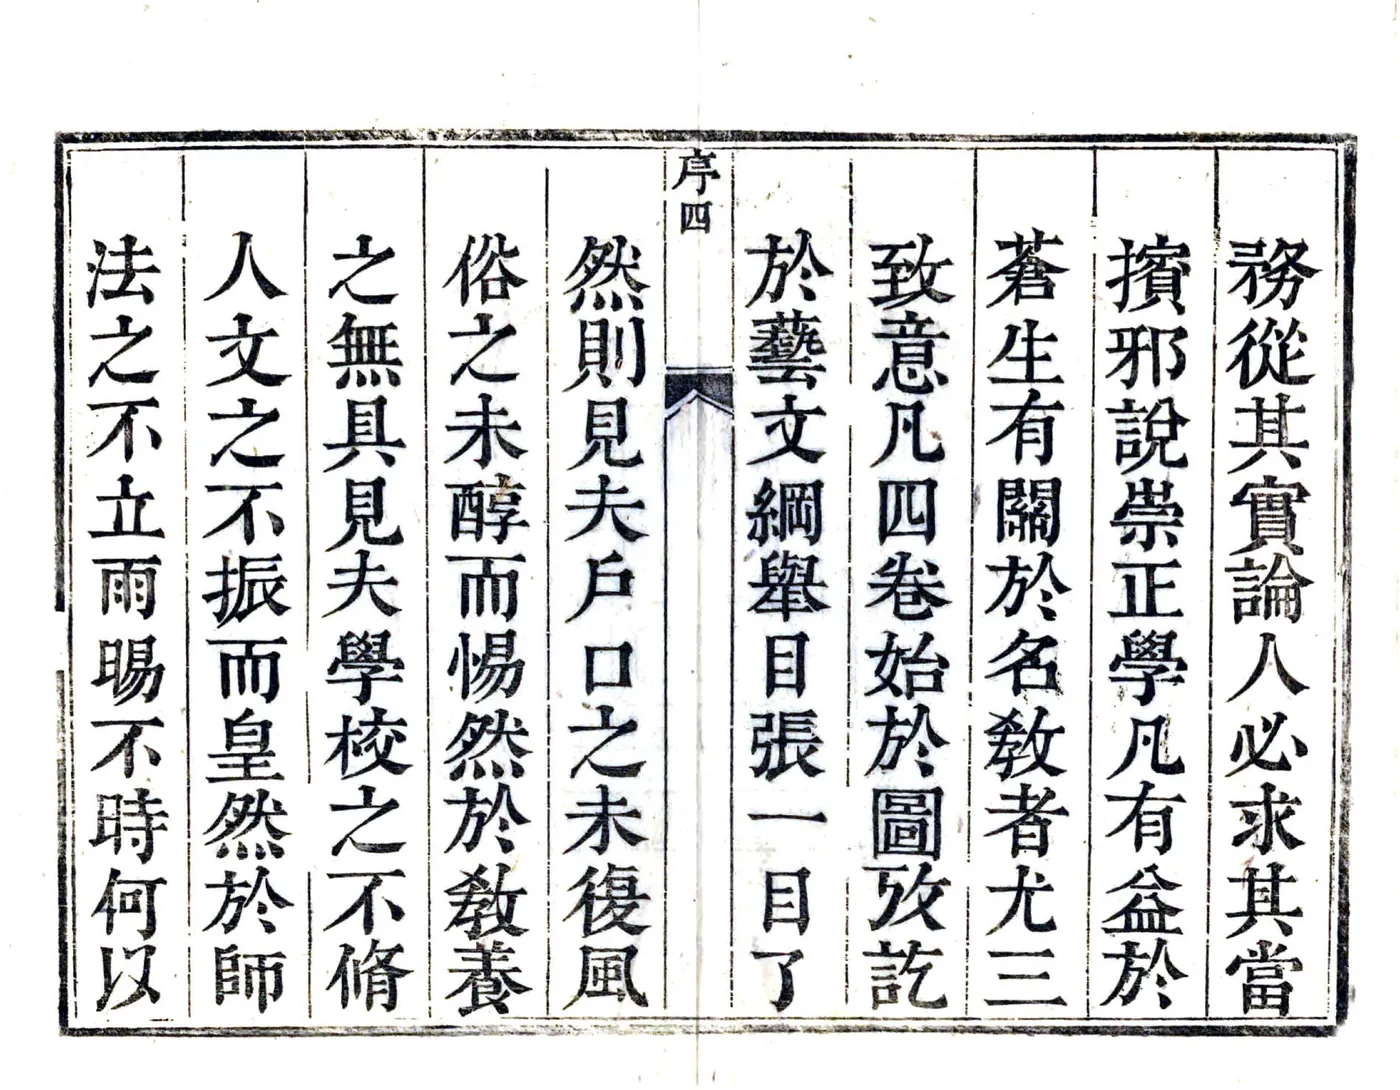 務從其實論人必求其當
擯邪說崇正學凡有益於
蒼生有關於名教者尤三
致意凡四卷始於圖攷訖
於藝文綱舉目張一目了
序四
然則見夫戶口之未復風
俗之未醇而惕然於教養
之無具見夫學校之不脩
人文之不振而皇然於師
法之不立雨暘不時何以